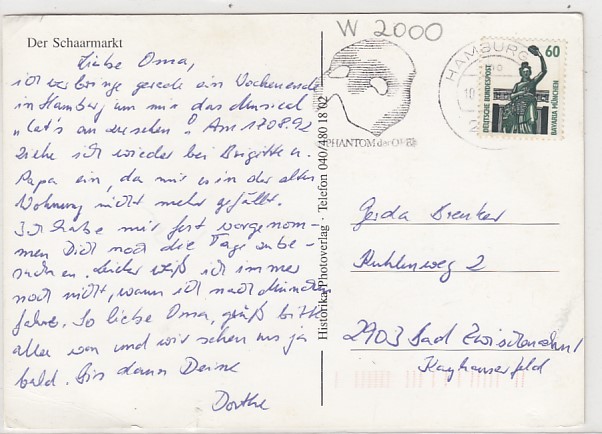 Der Schaarmarkt
Liebe Oma,
ich verbringe gerade ein Wochenende
in Hamburg um mir das Musical
"Cats" an zu sehen. Am 17.08.92
ziehe ich wieder bei Brigitte u.
Papa ein, da mir es in der alten
Wohnung nicht mehr gefällt.
Ich habe mir fest vorgenom-
men Dich noch die Tage zu be-
suchen. Leider weiß ich immer
noch nicht, wann ich nach München
fahre. So liebe Oma, grüß bitte
alle von und wir sehen uns ja
bald. Bis dann Deine
Dorthe
Historika Photoverlag · Telefon 040/480 18 02
W 2000
PHANTOM der OPER
HAMBURG
60
DEUTSCHE BUNDESPOST
BAVARIA MÜNCHEN
Gerda Brenker
Kuhlenweg 2
2903 Bad Zwischenahn 1
Kayhauserfeld